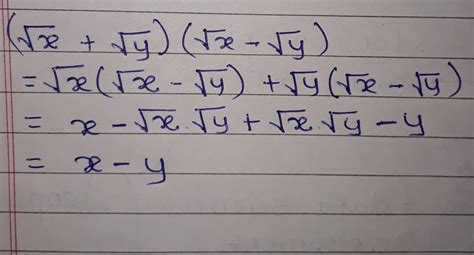 (√x + √y) (√x - √y)
= √x(√x - √y) + √y(√x - √y)
= x - √x.√y + √x.√y - y
= x - y